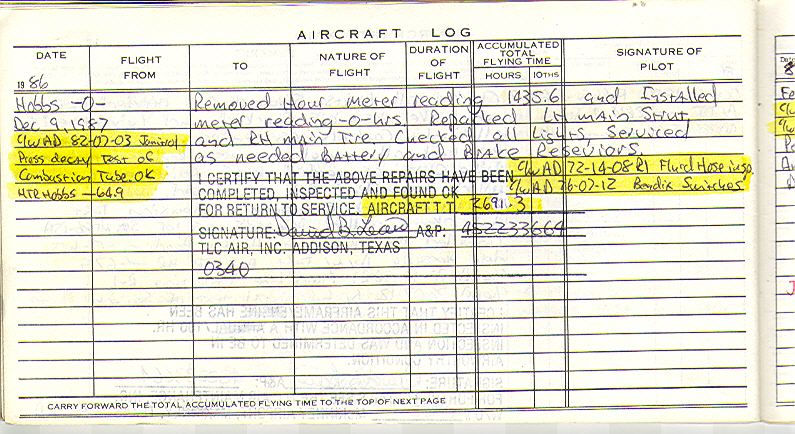 AIRCRAFT LOG
DATE
FLIGHT FROM
TO
NATURE OF FLIGHT
DURATION OF FLIGHT
ACCUMULATED TOTAL FLYING TIME
HOURS 10THS
SIGNATURE OF PILOT
1986
Hobbs -0- Removed Hour meter reading 1435.6 and Installed
Dec 9, 1987 meter reading -0- hrs. Repacked LH main Strut
C/W AD 82-07-03 Janitrol and RH main Tire. Checked all Lights Serviced
Press decay Test of as needed Battery and Brake Reseviors.
Combustion Tube. OK I CERTIFY THAT THE ABOVE REPAIRS HAVE BEEN C/W AD 72-14-08R1 Fluid Hose insp.
HTR Hobbs - 64.9 COMPLETED, INSPECTED AND FOUND OK C/W AD 76-07-12 Bendix Switches
FOR RETURN TO SERVICE. AIRCRAFT T.T. 2691.3
SIGNATURE: A&P: 452233664
TLC AIR, INC. ADDISON, TEXAS
0340
I CERTIFY THAT THIS AIRFRAME/ENGINE HAS BEEN
INSPECTED IN ACCORDANCE WITH A ANNUAL/100 HR.
INSPECTION AND WAS DETERMINED TO BE IN
AIRWORTHY CONDITION.
SIGNATURE: A&P:
CARRY FORWARD THE TOTAL ACCUMULATED FLYING TIME TO THE TOP OF NEXT PAGE